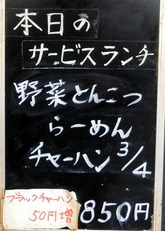 本日の
サービスランチ
野菜とんこつ
らーめん
チャーハン3/4
ブラックチャーハン
50円増
850円